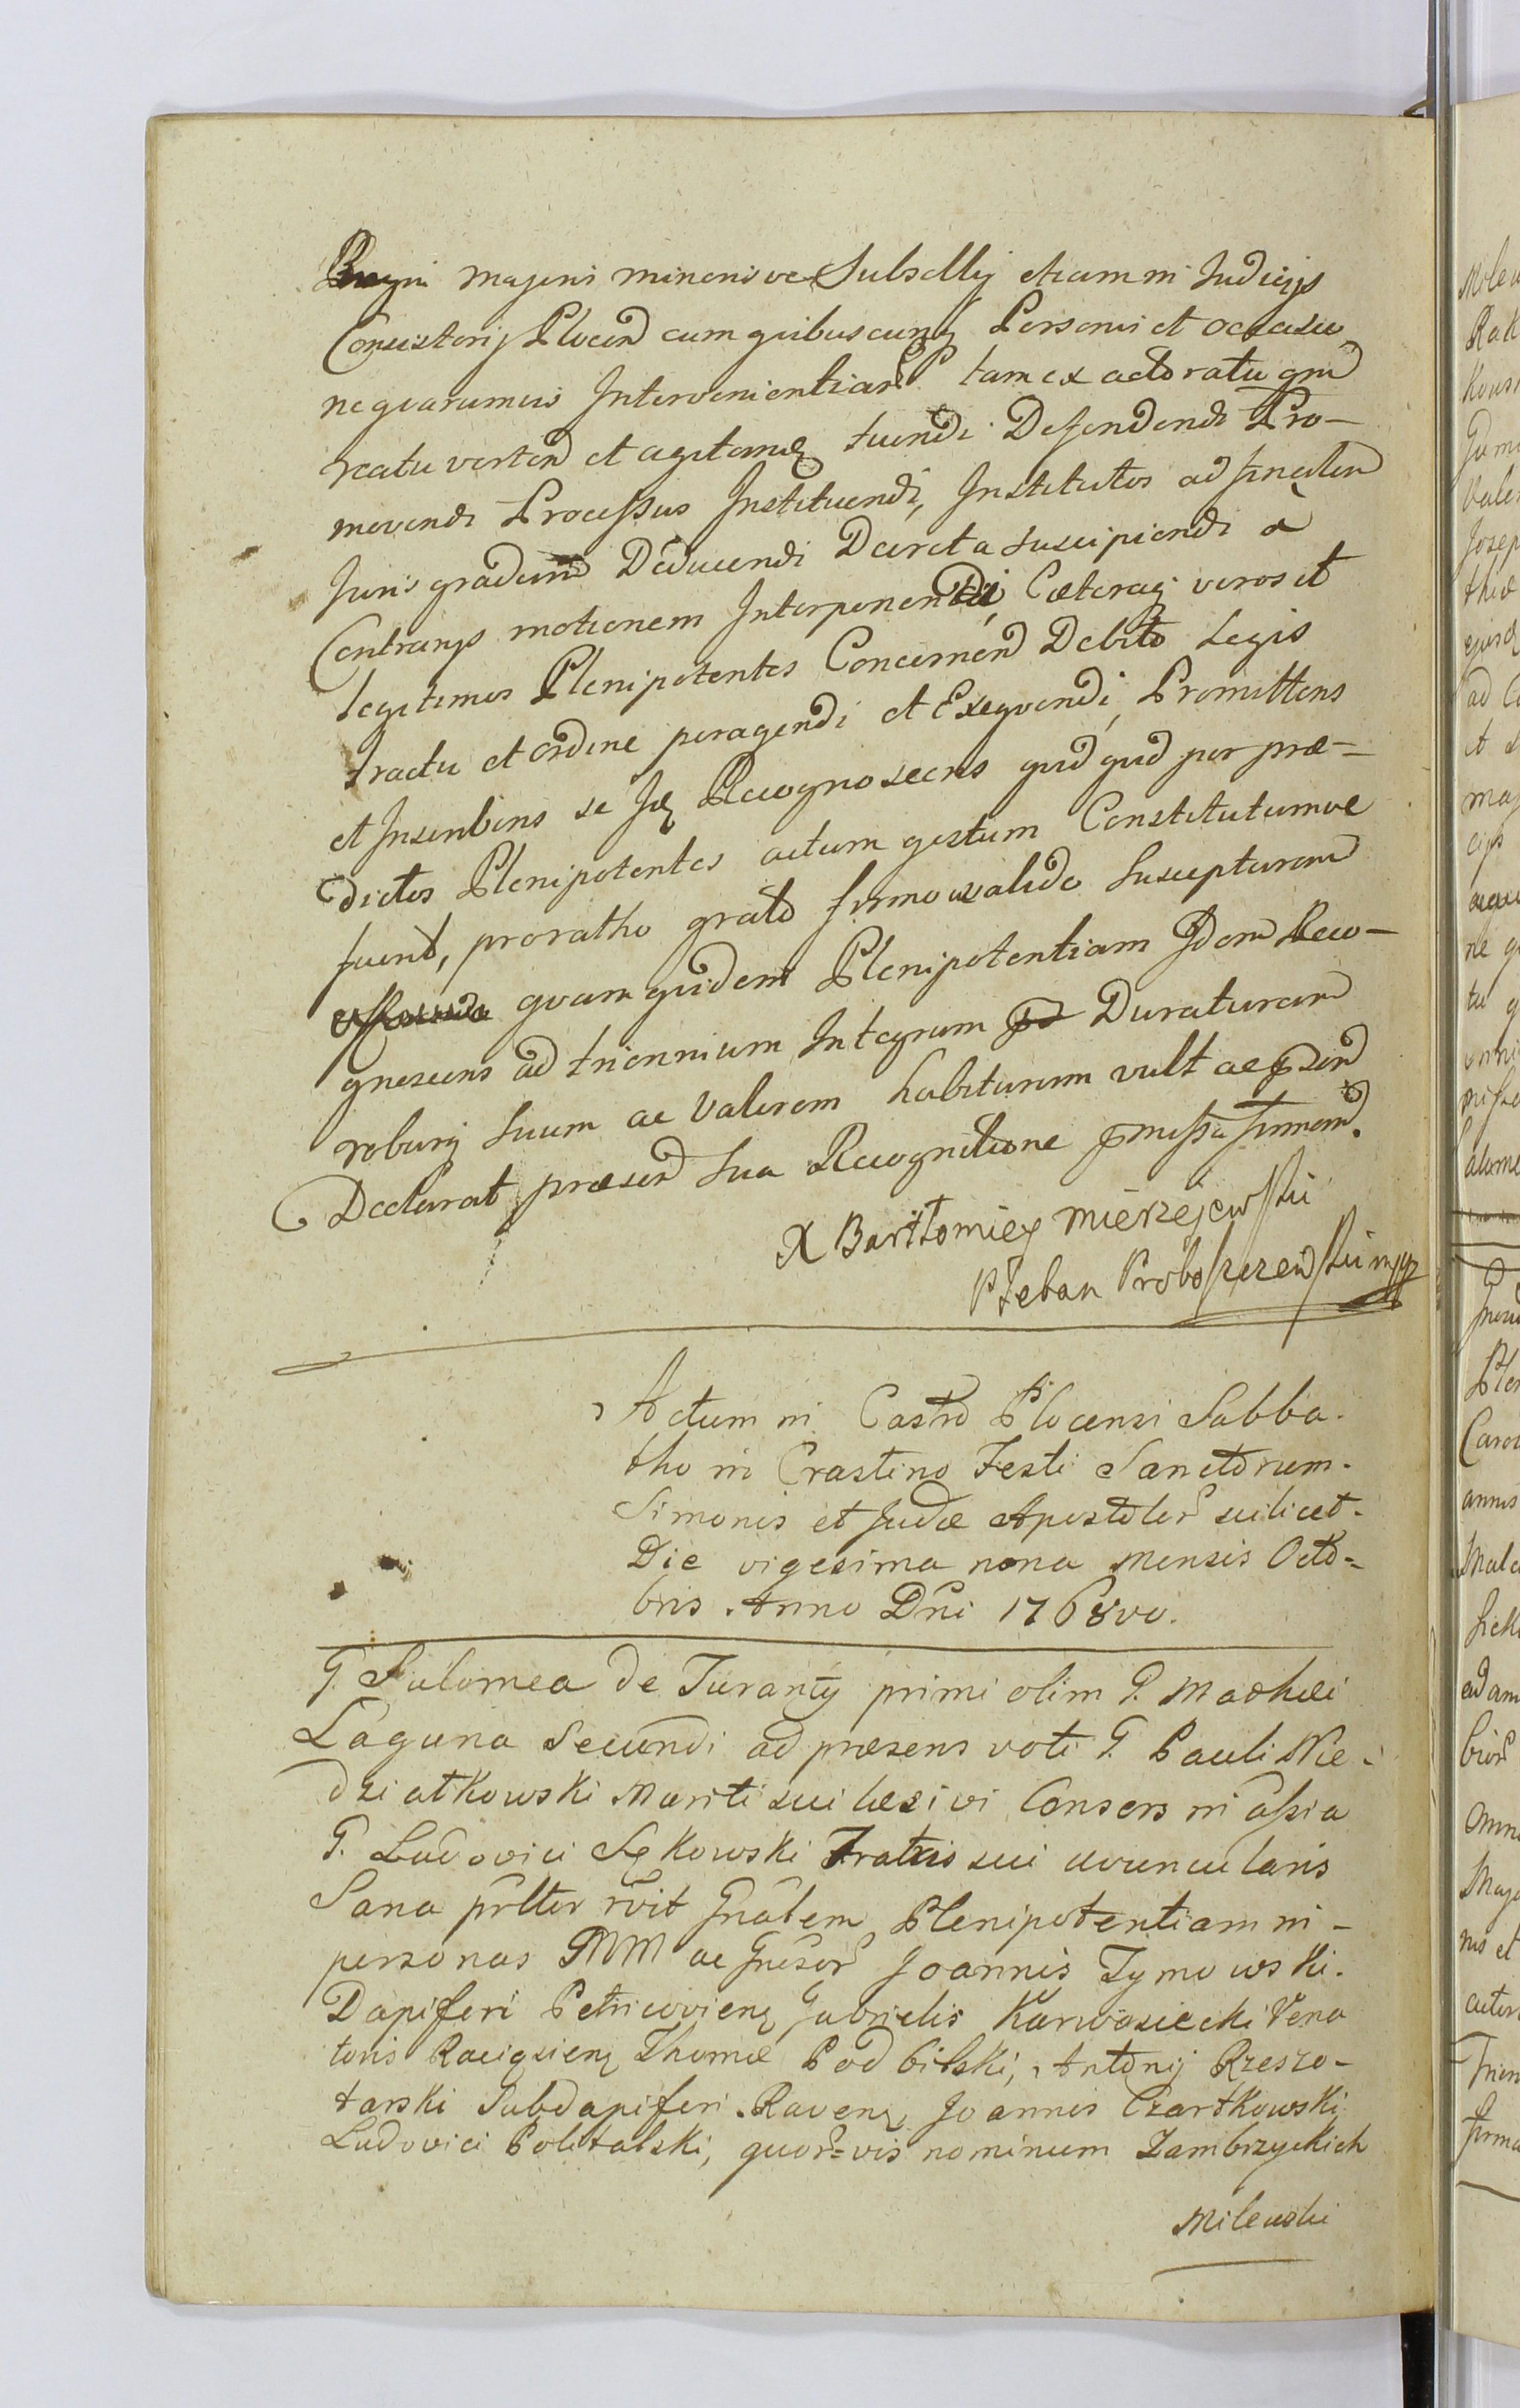 Regni majoris minorisve Subsellij etiam in Judicijs
Consistorij Plocen cum quibuscunq Personis et occasio
nequarumvis Intervenientiar tam ex actoratu qm
reatu verten et agitamq tuendi Defendendi Pro-
movendi Processus Instituendi, Institutos ad finalem
Juris gradum Deducendi Decreta suscipiendi à
Contrarijs motionem Interponendi, Cæteraq veros et
legitimos Plenipotentes Concernen Debito Legis
tractu et ordine peragendi et Exequendi, Promittens
et Inscribens se Idq Recognoscens quid quid per præ-
dictos Plenipotentes actum gestum Constitutumve
fuerit, pro ratho grato firmo valido Suscepturum
quamquidem Plenipotentiam Idem Reco-
gnoscens ad triennium Integrum Duraturam
roburq Suum ac Valorem habituram vult ac
Declarat præsen Sua Recognitione pmissa firman.
X Bartłomiey Mierzejewski
Pleban Proboszczewski mpp
Actum in Castro Plocensi Sabba-
tho in Crastino Festi Sanctorum
Simonis et Judæ Apostolor scilicet
Die vigesima nona Mensis Octo-
bris Anno Dni 1768vo.
G. Salomea de Turanty primi olim G. Mathæi
Laguna Secundi ad præsens voti G. Pauli Nie-
działkowski Mariti sui læsivi Consors in assia
G. Ludovici Sękowski Fratris sui avuncularis
Sana prltter rvit Gnalem Plenipotentiam in
personas MM ac Gnesor Joannis Tymowski
Dapiferi Petricovienq Gabrielis Karwosiecki Vena
toris Raciązienq Thomæ Podbilski, Antonij Rzeszo-
tarski Subdapiferi Ravenq Joannis Czartkowski
Ludovici Politalski, quor=vis nominum Zambrzyckich
Milewski